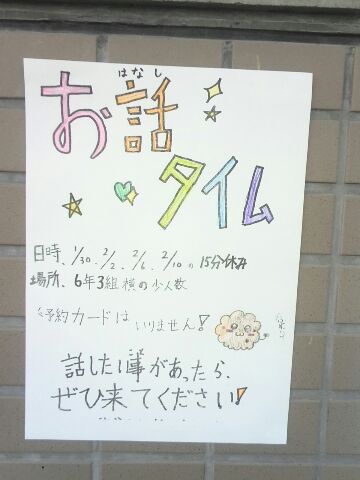 はなし
お話
タイム
日時、1/30、2/2、2/6、2/10の15分休み
場所、6年3組横の少人数
予約カードはいりません!
話したい事があったら、
ぜひ来てください!